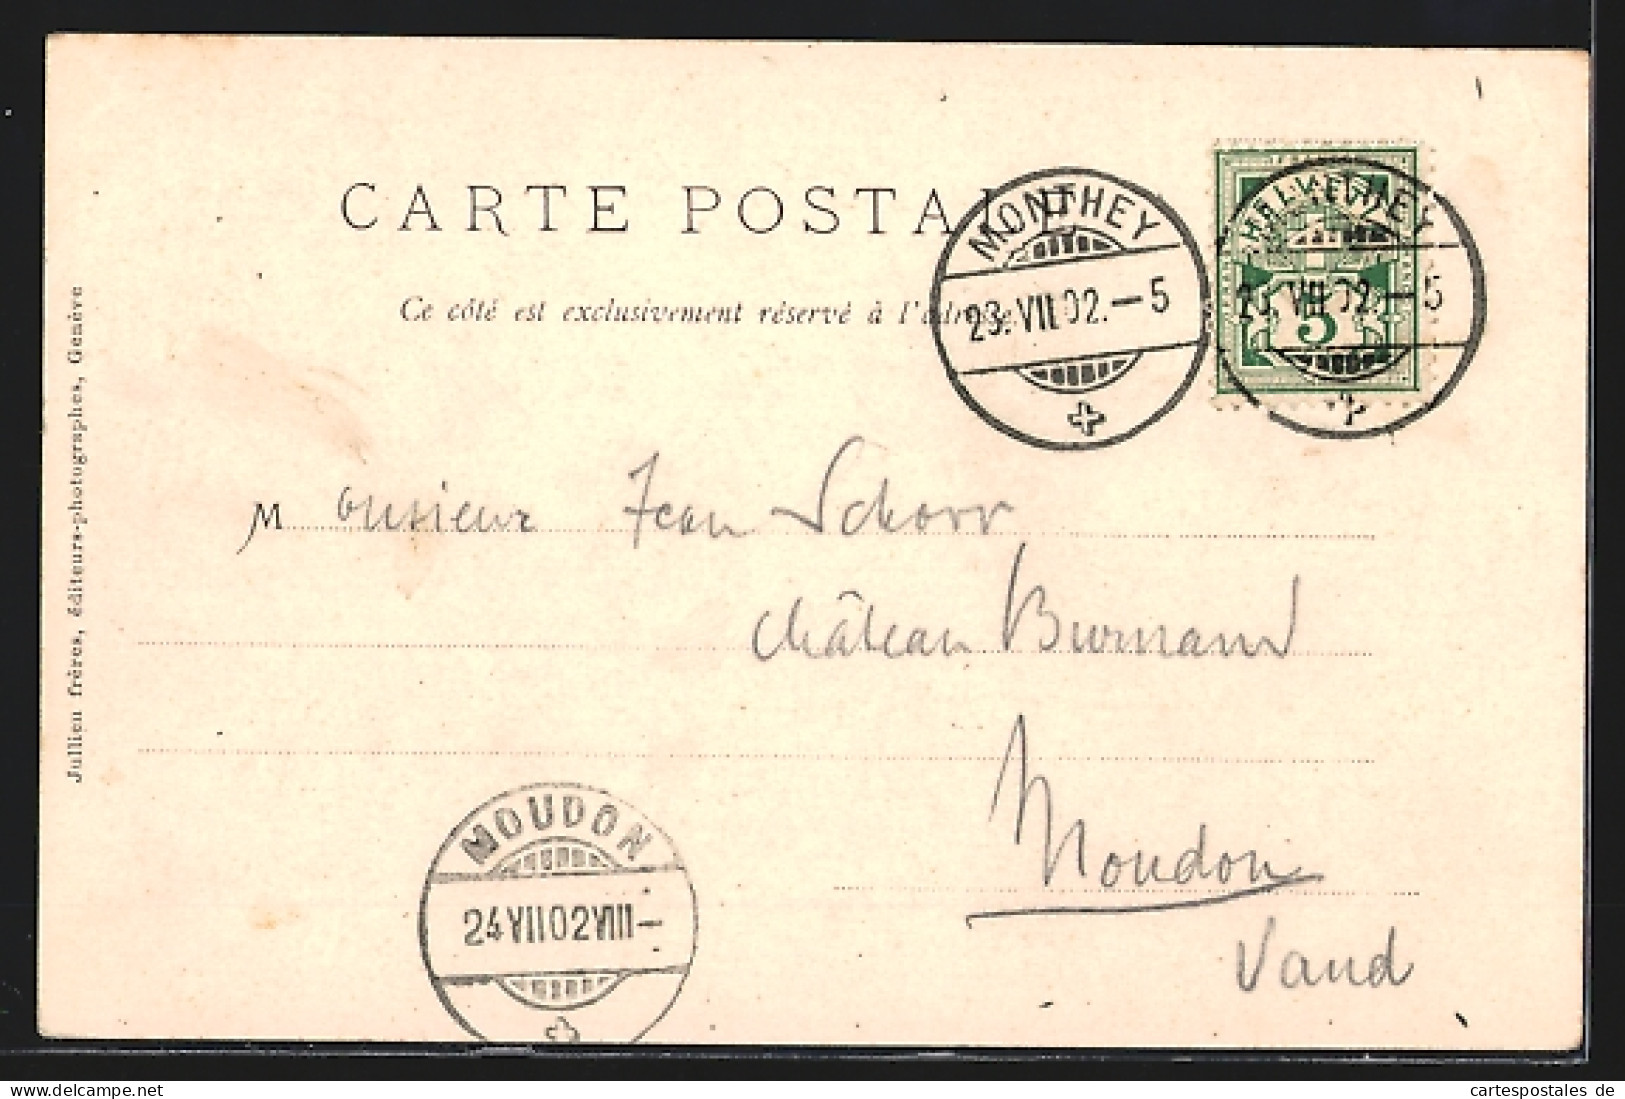 CARTE POSTALE
Ce côté est exclusivement réservé à l'adresse
MONTHEY
23.VII.02.—5
HELVETIA
MONTHEY
23.VII.02.—5
5
Jullien frères, éditeurs-photographes, Genève
Monsieur Jean Schorr
Château Burnand
Moudon
Vaud
MOUDON
24 VII 02 VIII—
delcampe.net
cartespostales de